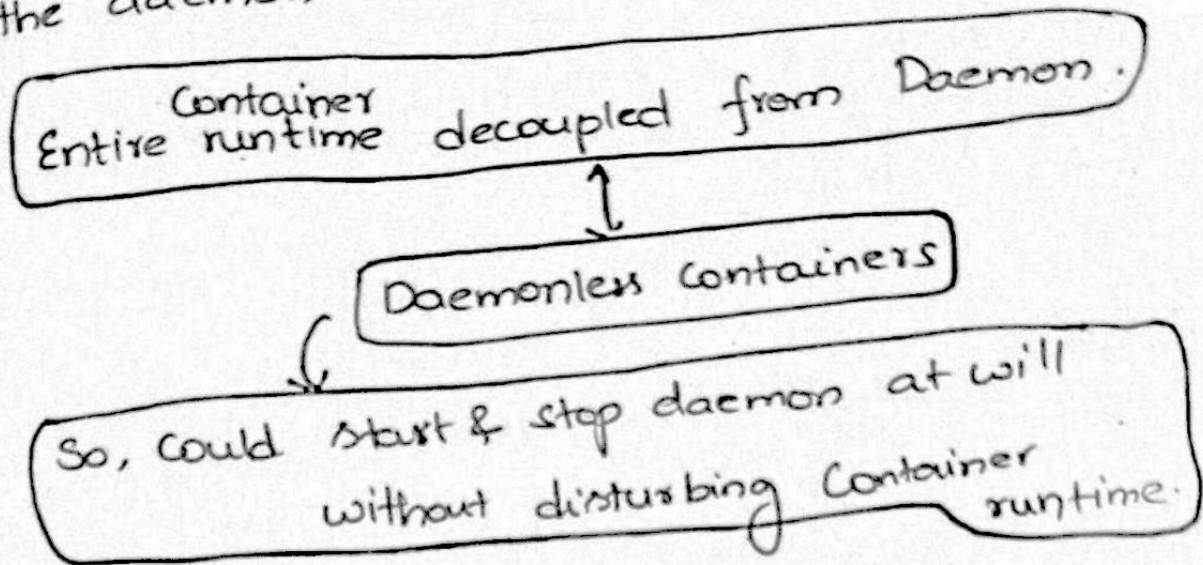 the daemon
Container
Entire runtime decoupled from Daemon.
Daemonless Containers
So, could start & stop daemon at will
without disturbing Container
runtime.